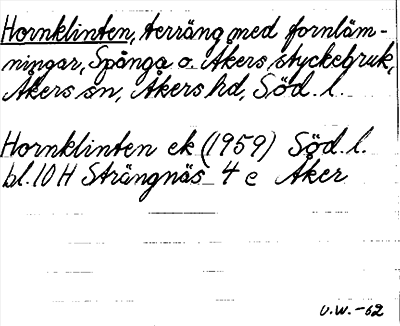 Hornklinten, terräng med fornläm-
ningar, Spånga o. Åkers styckebruk,
Åkers sn, Åkers hd, Söd. l.
Hornklinten ek (1959) Söd. l.
bl. 10 H Strängnäs 4 e Åker
U.W.-62